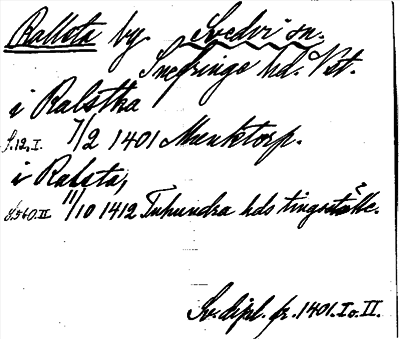 Rallsta by. Svedvi sn.
Snefringe hd. Vst.
i Ralstha
S. 12, I. 7/2 1401 Munktorp.
i Ralsta,
S. 560. II 11/10 1412 Tuhundra hds tingsställe.
Sv. dipl. fr. 1401. I o. II.